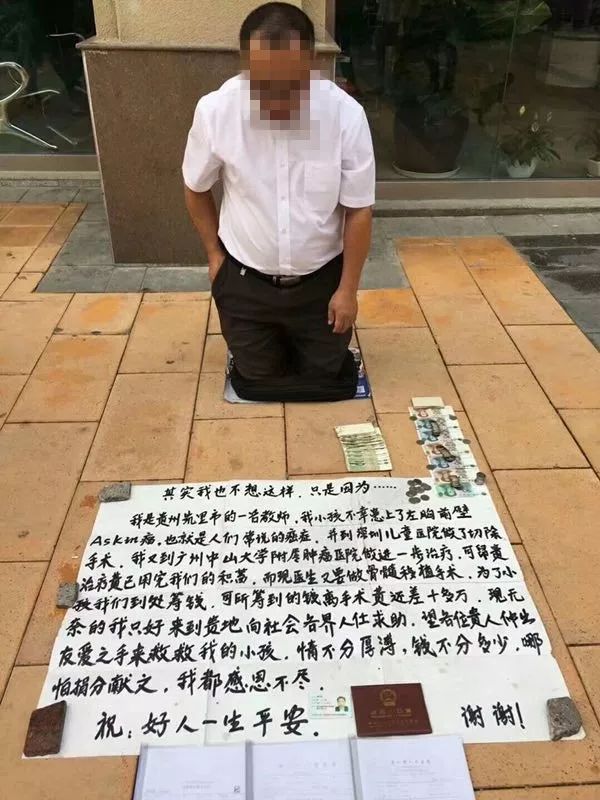 其实我也不想这样，只是因为……
我是贵州凯里市的一名教师，我小孩不幸患上了左胸前壁
Askin病，也就是人们常说的癌症，并到深圳儿童医院做了切除
手术，我又到广州中山大学附属肿瘤医院做进一步治疗，可昂贵
治疗费已用完我们的积蓄，而现医生又要做骨髓移植手术，为了小
孩我们到处筹钱，可所筹到的钱离手术费还差十多万，现无
奈的我只好来到贵地向社会各界人仕求助，望各位贵人伸出
友爱之手来救救我的小孩，情不分厚薄，钱不分多少，哪
怕捐分献文，我都感恩不尽
祝：好人一生平安。 谢谢！